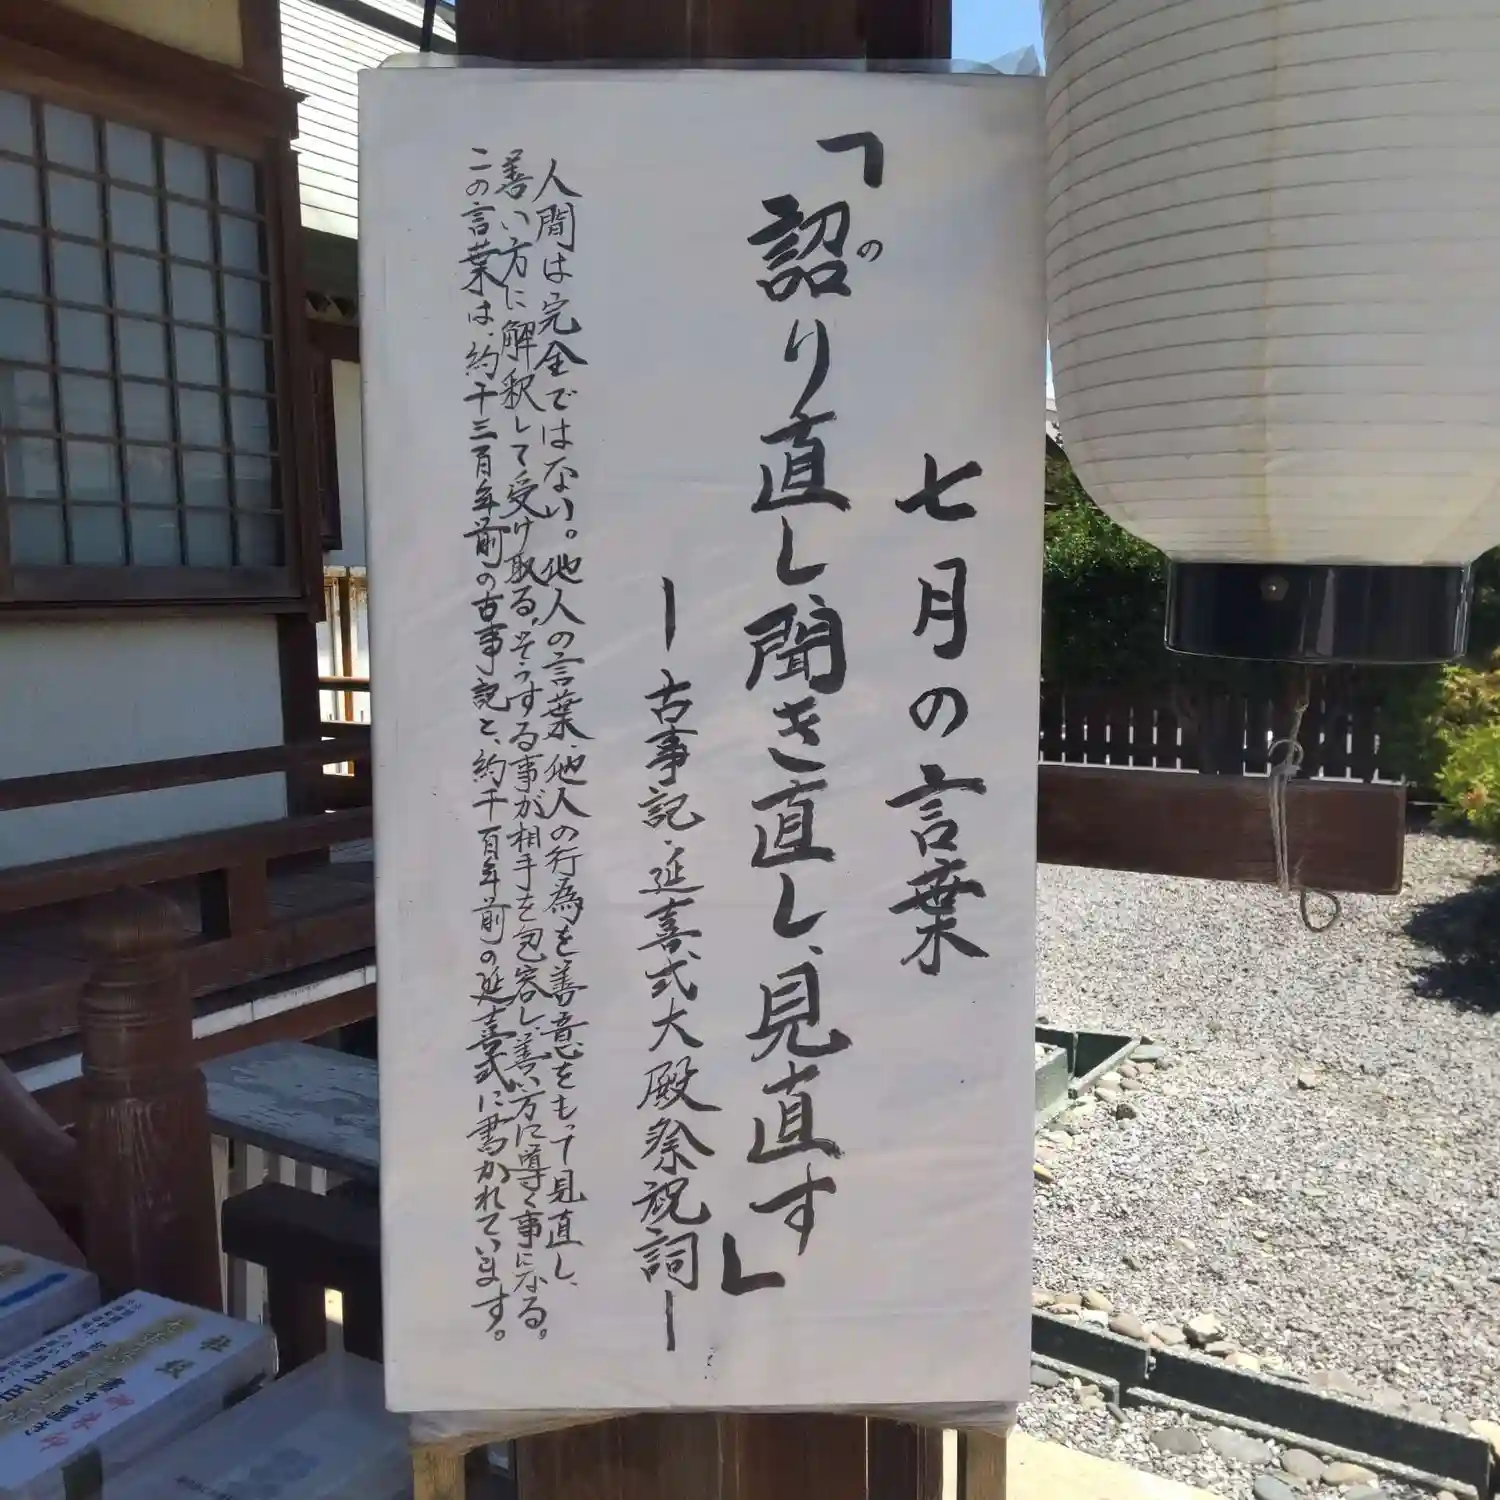 七月の言葉
「詔り直し、聞き直し、見直す」
の
ー古事記・延喜式大殿祭祝詞ー
人間は完全ではない。他人の言葉、他人の行為を善意をもって見直し、
善い方に解釈して受け取る、そうする事が相手を包容し、善い方に導く事になる。
この言葉は、約千三百年前の古事記と、約千百年前の延喜式に書かれています。